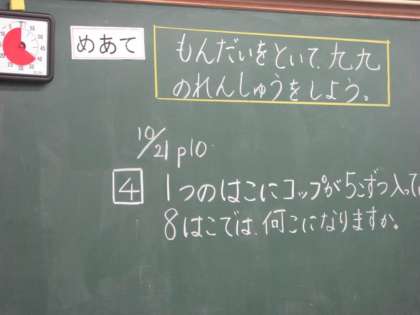 めあて
もんだいをといて、九九
のれんしゅうをしよう。
10/21 p10
4 1つのはこにコップが5こずつ入って
8はこでは、何こになりますか。